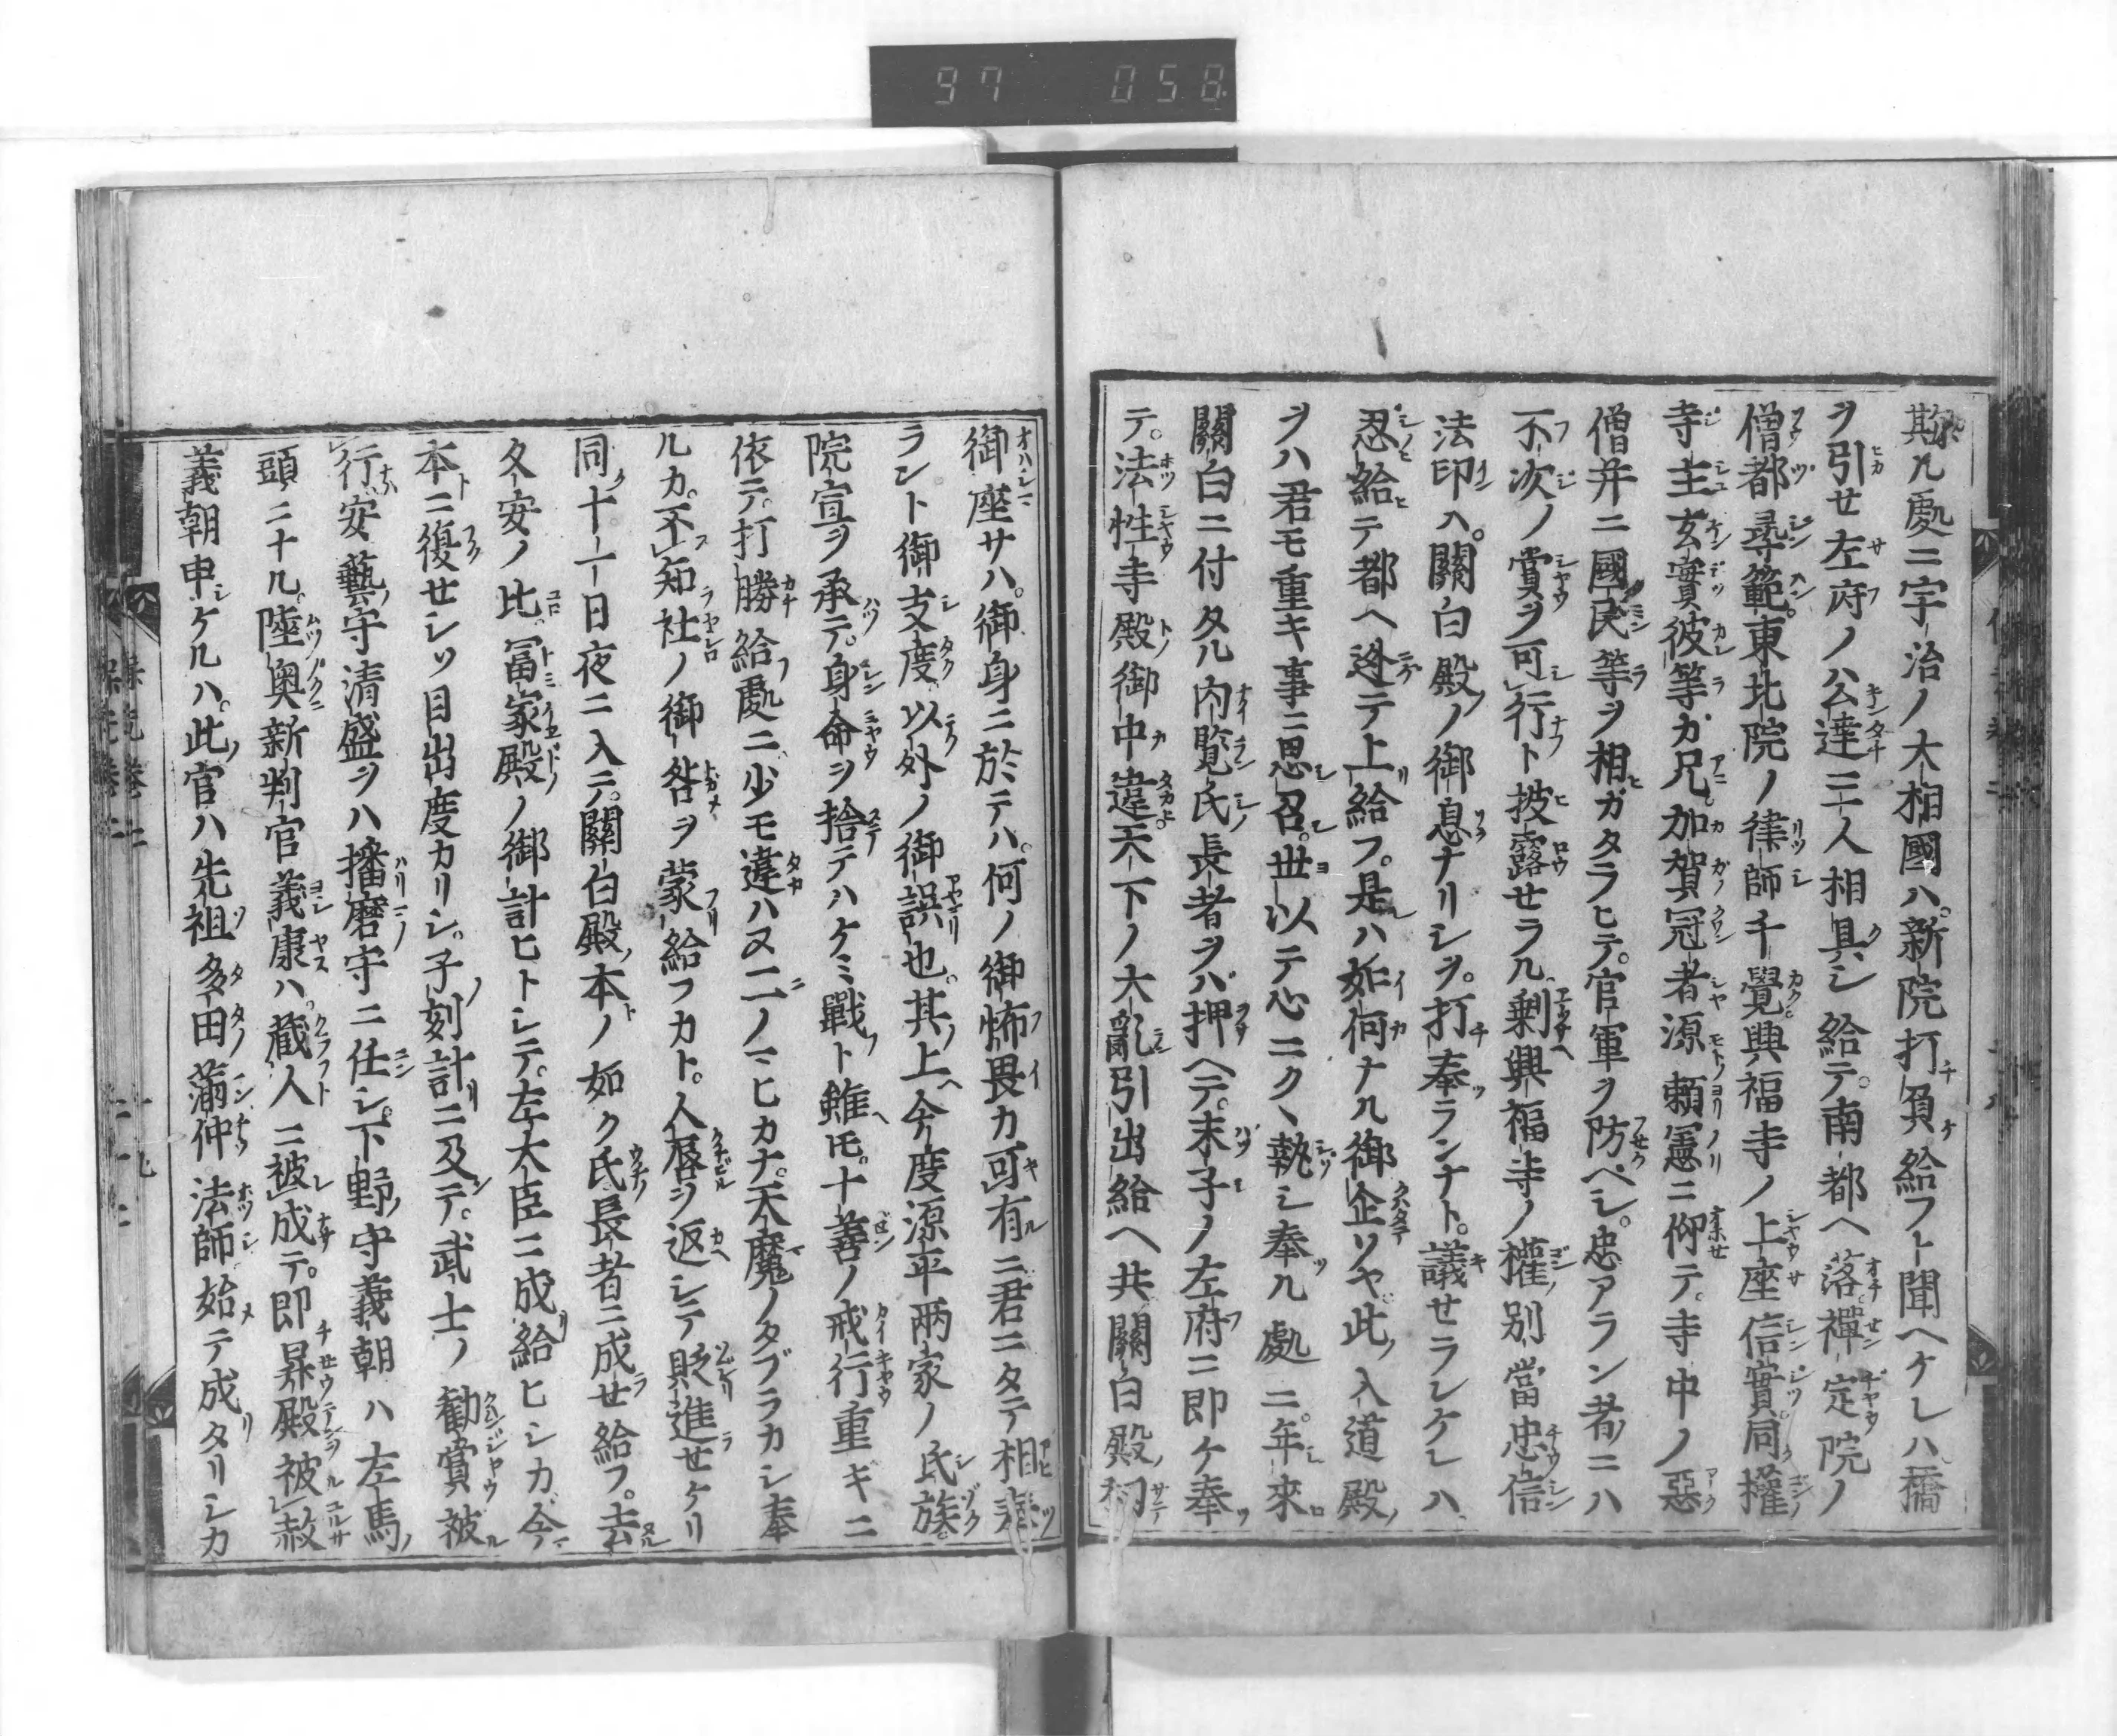 97 058
斯ル處ニ宇治ノ大相國ハ。新院打負給フト聞ヘケレハ。橋
ヲ引セ左府ノ公達三人相具シ給テ。南都ヘ落。禪定院ノ
僧都尋範。東北院ノ律師千覺。興福寺ノ上座信實。同權
寺主玄實。彼等カ兄。加賀冠者源頼憲ニ仰テ。寺中ノ惡
僧并ニ國民等ヲ相ガタラヒテ。官軍ヲ防ベシ。忠アラン者ニハ
不次ノ賞ヲ可行ト披露セラル。剰興福寺ノ權別當忠信
法印ハ。關白殿ノ御息ナリシヲ。打奉ランナト。議セラレケレハ。
忍給テ都ヘ迯テ上給フ。是ハ如何ナル御企ソヤ。此入道殿
ヲハ君モ重キ事ニ思召。世以テ心ニクヽ執シ奉ル處ニ。年來
關白ニ付タル内覧氏長者ヲバ押ヘテ。末子ノ左府ニ即ケ奉
テ。法性寺殿御中違。天下ノ大亂引出給ヘ共關白殿
御座サハ。御身ニ於テハ。何ノ御怖畏カ可有ニ君ニタテ相奉
ラント御支度以外ノ御誤也。其上今度源平兩家ノ氏族。
院宣ヲ承テ。身命ヲ捨テハケミ戰ト雖モ。十善ノ戒行重ギニ
依テ。打勝給處ニ少モ違ハヌ
ルカ。不知社ノ御咎ヲ蒙給フカト。人唇ヲ返シテ貶進セケリ
同十一日夜ニ入テ。關白殿本ノ如ク氏長者ニ成セ給フ。去
久安ノ比。冨家殿ノ御計ヒトシテ。左大臣ニ成給ヒシカ。今
本ニ復セシソ目出度カリシ。子刻計ニ及テ。武士ノ勸賞被
行。安藝守清盛ヲハ播磨守ニ任シ。下野守義朝ハ左馬
頭ニナル。陸奥新判官義康ハ。藏人ニ被成テ。即昇殿被赦
義朝申ケルハ。此官ハ先祖多田滿仲法師始テ成タリシカ